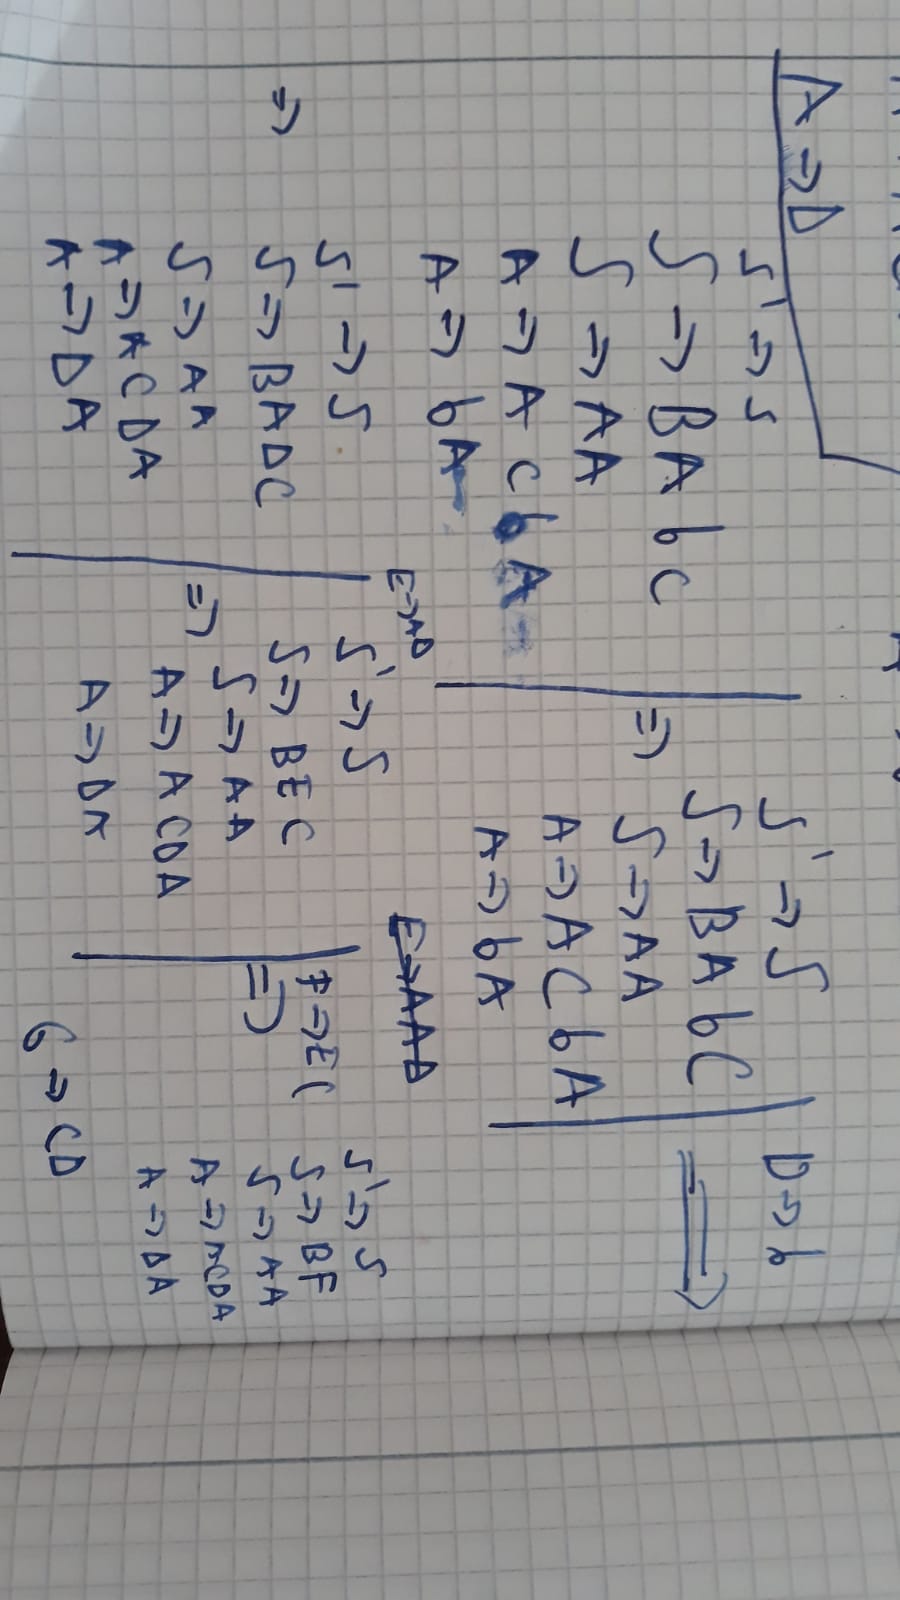 A → D
S' → S
S → BAbC
S → AA
A → ACbA
A → bA
⇒
S' → S
S → BAbC
S → AA
A → ACbA
A → bA
D → b
⇒
⇒
S' → S
S → BADC
S → AA
A → ACDA
A → DA
E → AD
⇒
S' → S
S → BEC
S → AA
A → ACDA
A → DA
E → AAD
F → EC
⇒
S' → S
S → BF
S → AA
A → ACDA
A → DA
G → CD